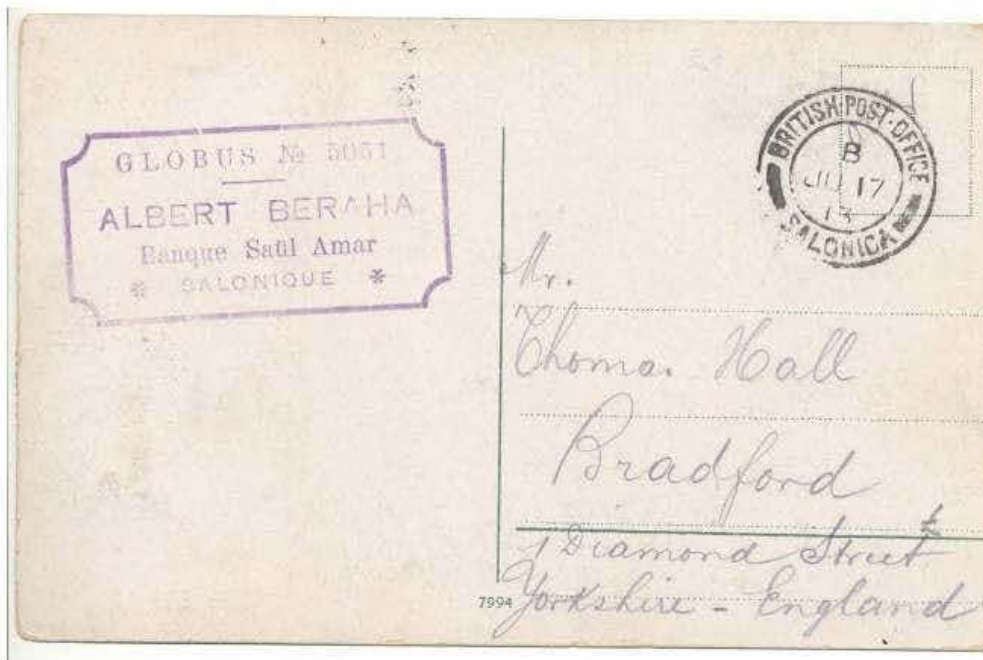 GLOBUS № 5051
ALBERT BERAHA
Banque Saül Amar
* SALONIQUE *
BRITISH·POST·OFFICE
B
JU 17
13
SALONICA
Mr.
Thomas Hall
Bradford
1 Diamond Street
Yorkshire - England
7994